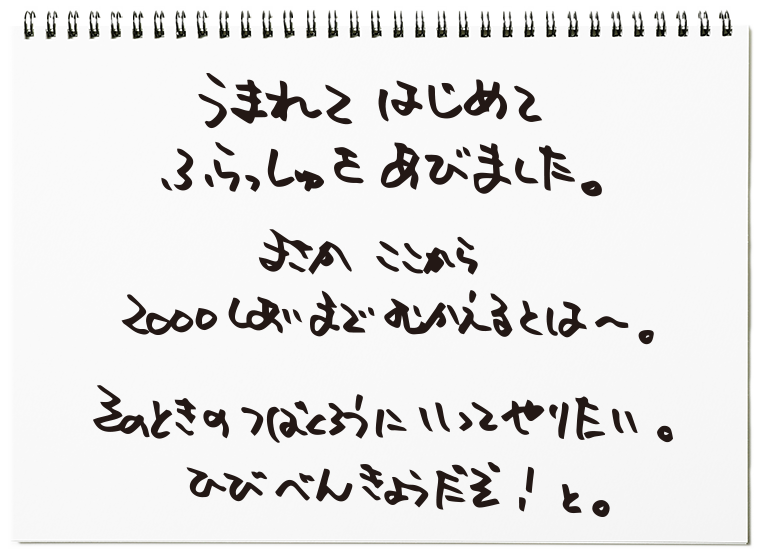 うまれて はじめて
ふらっしゅを あびました。
まさか ここから
2000しあいまで むかえるとは〜。
そのときの つばくろうに いってやりたい。
ひび べんきょうだぞ！と。